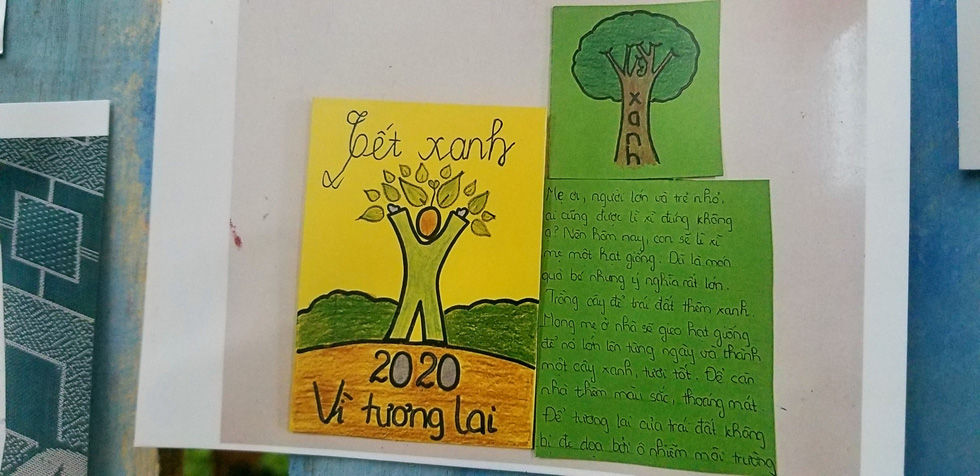 Tết xanh
2020
Vì tương lai
xanh
Mẹ ơi, người lớn và trẻ nhỏ.
ai cũng được lì xì đúng không
ạ? Nên hôm nay, con sẽ lì xì
mẹ một hạt giống. Dù là món
quà bé nhưng ý nghĩa rất lớn.
Trồng cây để trái đất thêm xanh.
Mong mẹ ở nhà sẽ gieo hạt giống
để nó lớn lên từng ngày và thành
một cây xanh, tươi tốt. Để căn
nhà thêm màu sắc, thoáng mát.
Để tương lai của trái đất không
bị đe dọa bởi ô nhiễm môi trường